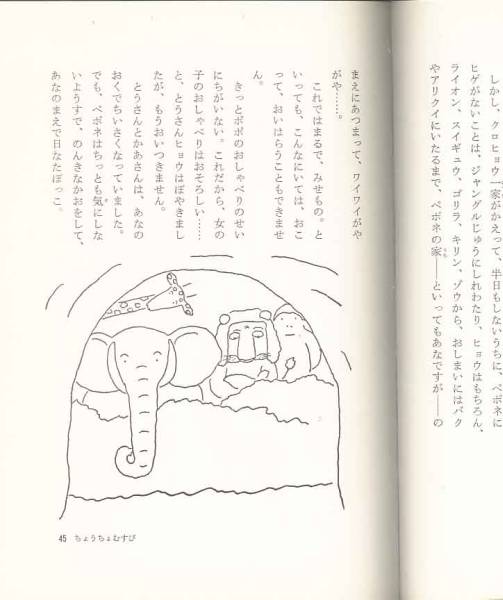 しかし、クロヒョウ一家がかえって、半日もしないうちに、ペポネに
ヒゲがないことは、ジャングルじゅうにしれわたり、ヒョウはもちろん、
ライオン、スイギュウ、ゴリラ、キリン、ゾウから、おしまいにはバク
やアリクイにいたるまで、ペポネの家――といってもあなですが――の
まえにあつまって、ワイワイがや
がや……。
これではまるで、みせもの。と
いっても、こんなにいては、おこ
って、おいはらうこともできませ
ん。
きっとポポのおしゃべりのせい
にちがいない。これだから、女の
子のおしゃべりはおそろしい……
と、とうさんヒョウはぼやきまし
たが、もうおいつきません。
とうさんとかあさんは、あなの
おくでちいさくなっていました。
でも、ペポネはちっとも気にしな
いようすで、のんきなかおをして、
あなのまえで日なたぼっこ。
45 ちょうちょむすび